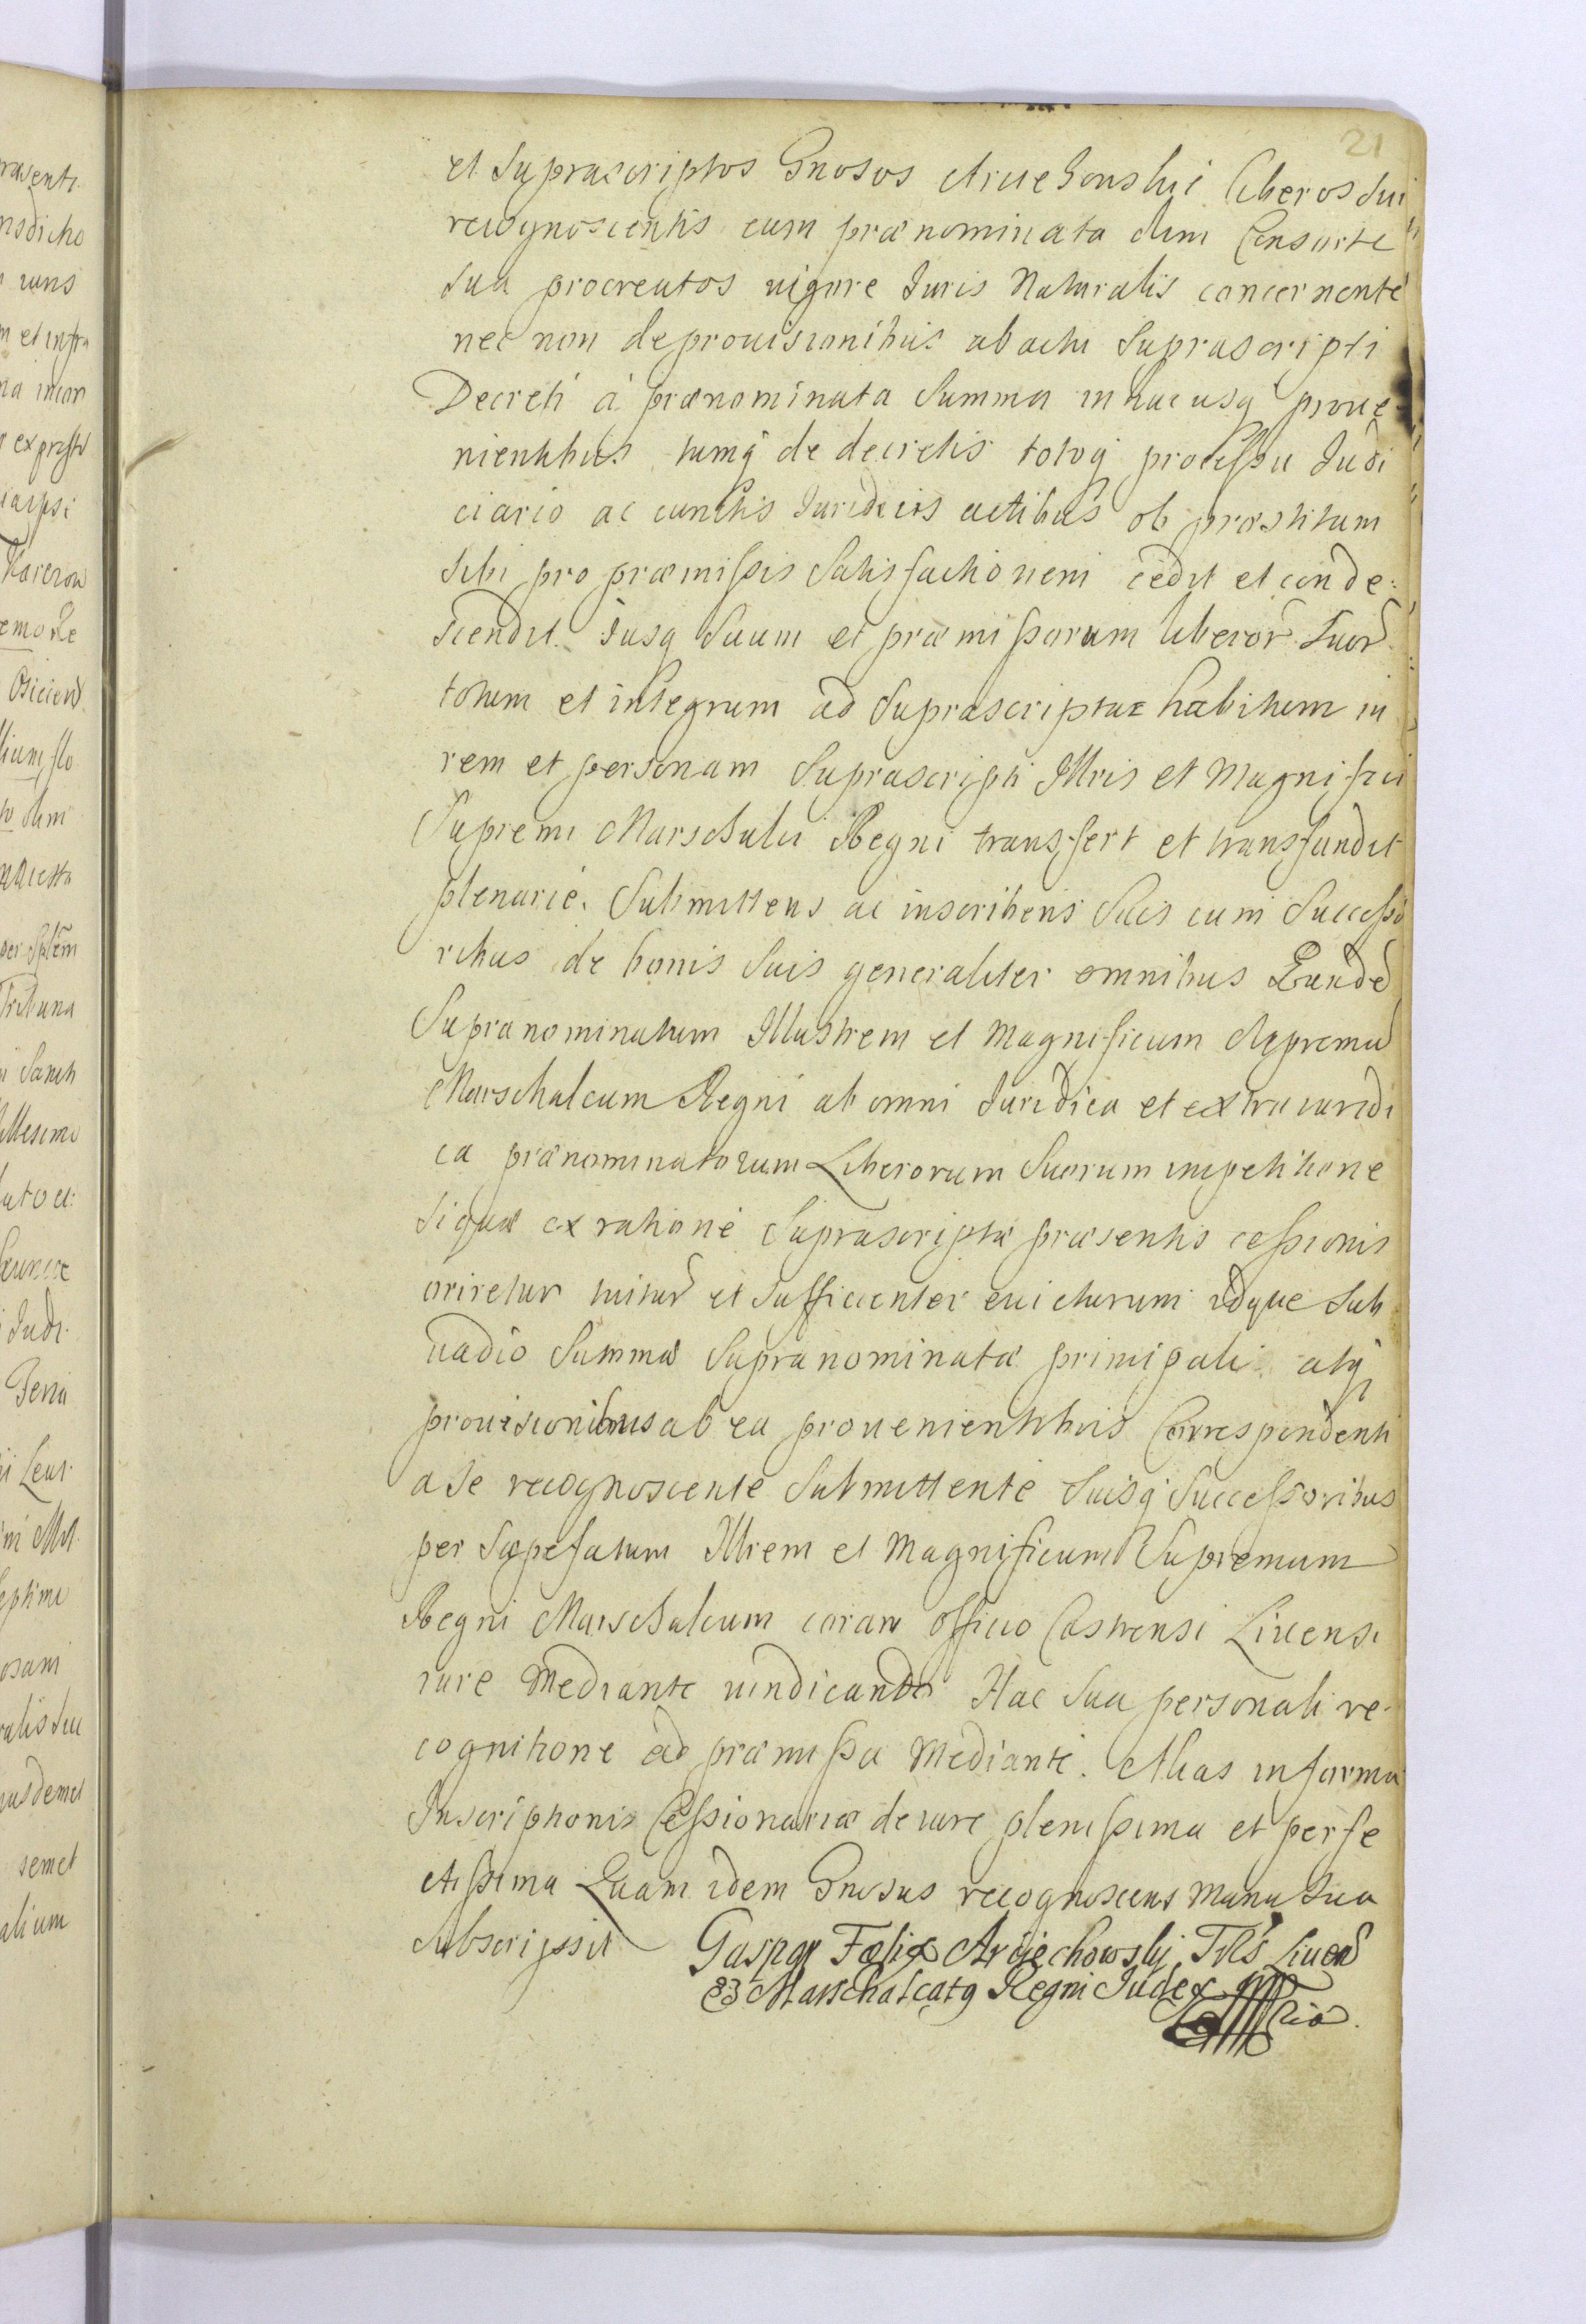 21
et Suprascriptos Gnosos Arciechouski liberos sui
recognoscentis cum prænominata olim Consorte
sua procreatos uigore Iuris Naturalis concernente
nec non de prouisionibus ab actu Suprascripti
Decreti à prænominata Summa in hac usq proue
nientibus tumq de decretis totoq processu Iudi
ciario ac cunctis Iuridicis actibus ob præstitam
sibi pro præmissis Satisfactionem cedit et conde:
scendit. Iusq Suum et præmissorum liberor Suor
totum et integrum ad Suprascripta habitum in
rem et personam Suprascripti Illris et Magnifici
Supremi Marschalci Regni transfert et transfundit
plenarie. Submittens ac inscribens Suis cum Successo
ribus de bonis Suis generaliter omnibus Eunde
Supranominatum Illustrem et Magnificum Supremu
Marschalcum Regni ab omni Iuridica et extra iuridi
ca prænominatorum Liberorum Suorum impetitione
siquæ ex ratione Suprascriptæ præsentis cessionis
oriretur tuitur et Sufficienter euicturum idque Sub
uadio Summæ Supranominatæ principali atq
prouisionibus ab ea prouenientibus Correspondenti
a Se recognoscente Submittente Suisq Successoribus
per Sæpefatum Illrem et Magnificum Supremum
Regni Marschalcum coram Officio Castrensi Liuensi
iure Mediante uindicando Hac Sua personali re-
cognitione ad præmissa Mediante. Alias in forma
Inscriptionis Cessionariæ de iure plenissima et perfe
ctissima Quam idem Gnosus recognoscens Manu Sua
subscripsit Gaspar Fælix Arciechowskj Tr̃s Liuen
& Marschalcatq Regni Iudex mp
ria.